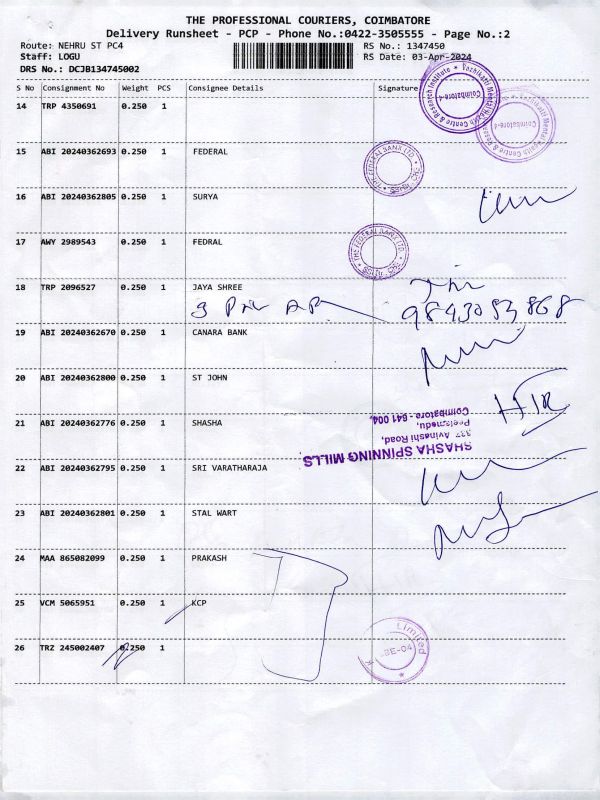 THE PROFESSIONAL COURIERS, COIMBATORE
Delivery Runsheet - PCP - Phone No.:0422-3505555 - Page No.:2
Route: NEHRU ST PC4 RS No.: 1347450
Staff: LOGU RS Date: 03-Apr-2024
DRS No.: DCJB134745002
S No Consignment No Weight PCS Consignee Details Signature
14 TRP 4350691 0.250 1
15 ABI 20240362693 0.250 1 FEDERAL
16 ABI 20240362805 0.250 1 SURYA
17 AWY 2989543 0.250 1 FEDRAL
18 TRP 2096527 0.250 1 JAYA SHREE
9843053868
19 ABI 20240362670 0.250 1 CANARA BANK
20 ABI 20240362800 0.250 1 ST JOHN
21 ABI 20240362776 0.250 1 SHASHA
SHASHA SPINNING MILLS
337 Avinashi Road,
Peelamedu,
Coimbatore - 641 004.
22 ABI 20240362795 0.250 1 SRI VARATHARAJA
23 ABI 20240362801 0.250 1 STAL WART
24 MAA 865082099 0.250 1 PRAKASH
25 VCM 5065951 0.250 1 KCP
26 TRZ 245002407 0.250 1
Limited
THE FEDERAL BANK LTD.
THE FEDERAL BANK LTD.
Coimbatore-4
Coimbatore-4